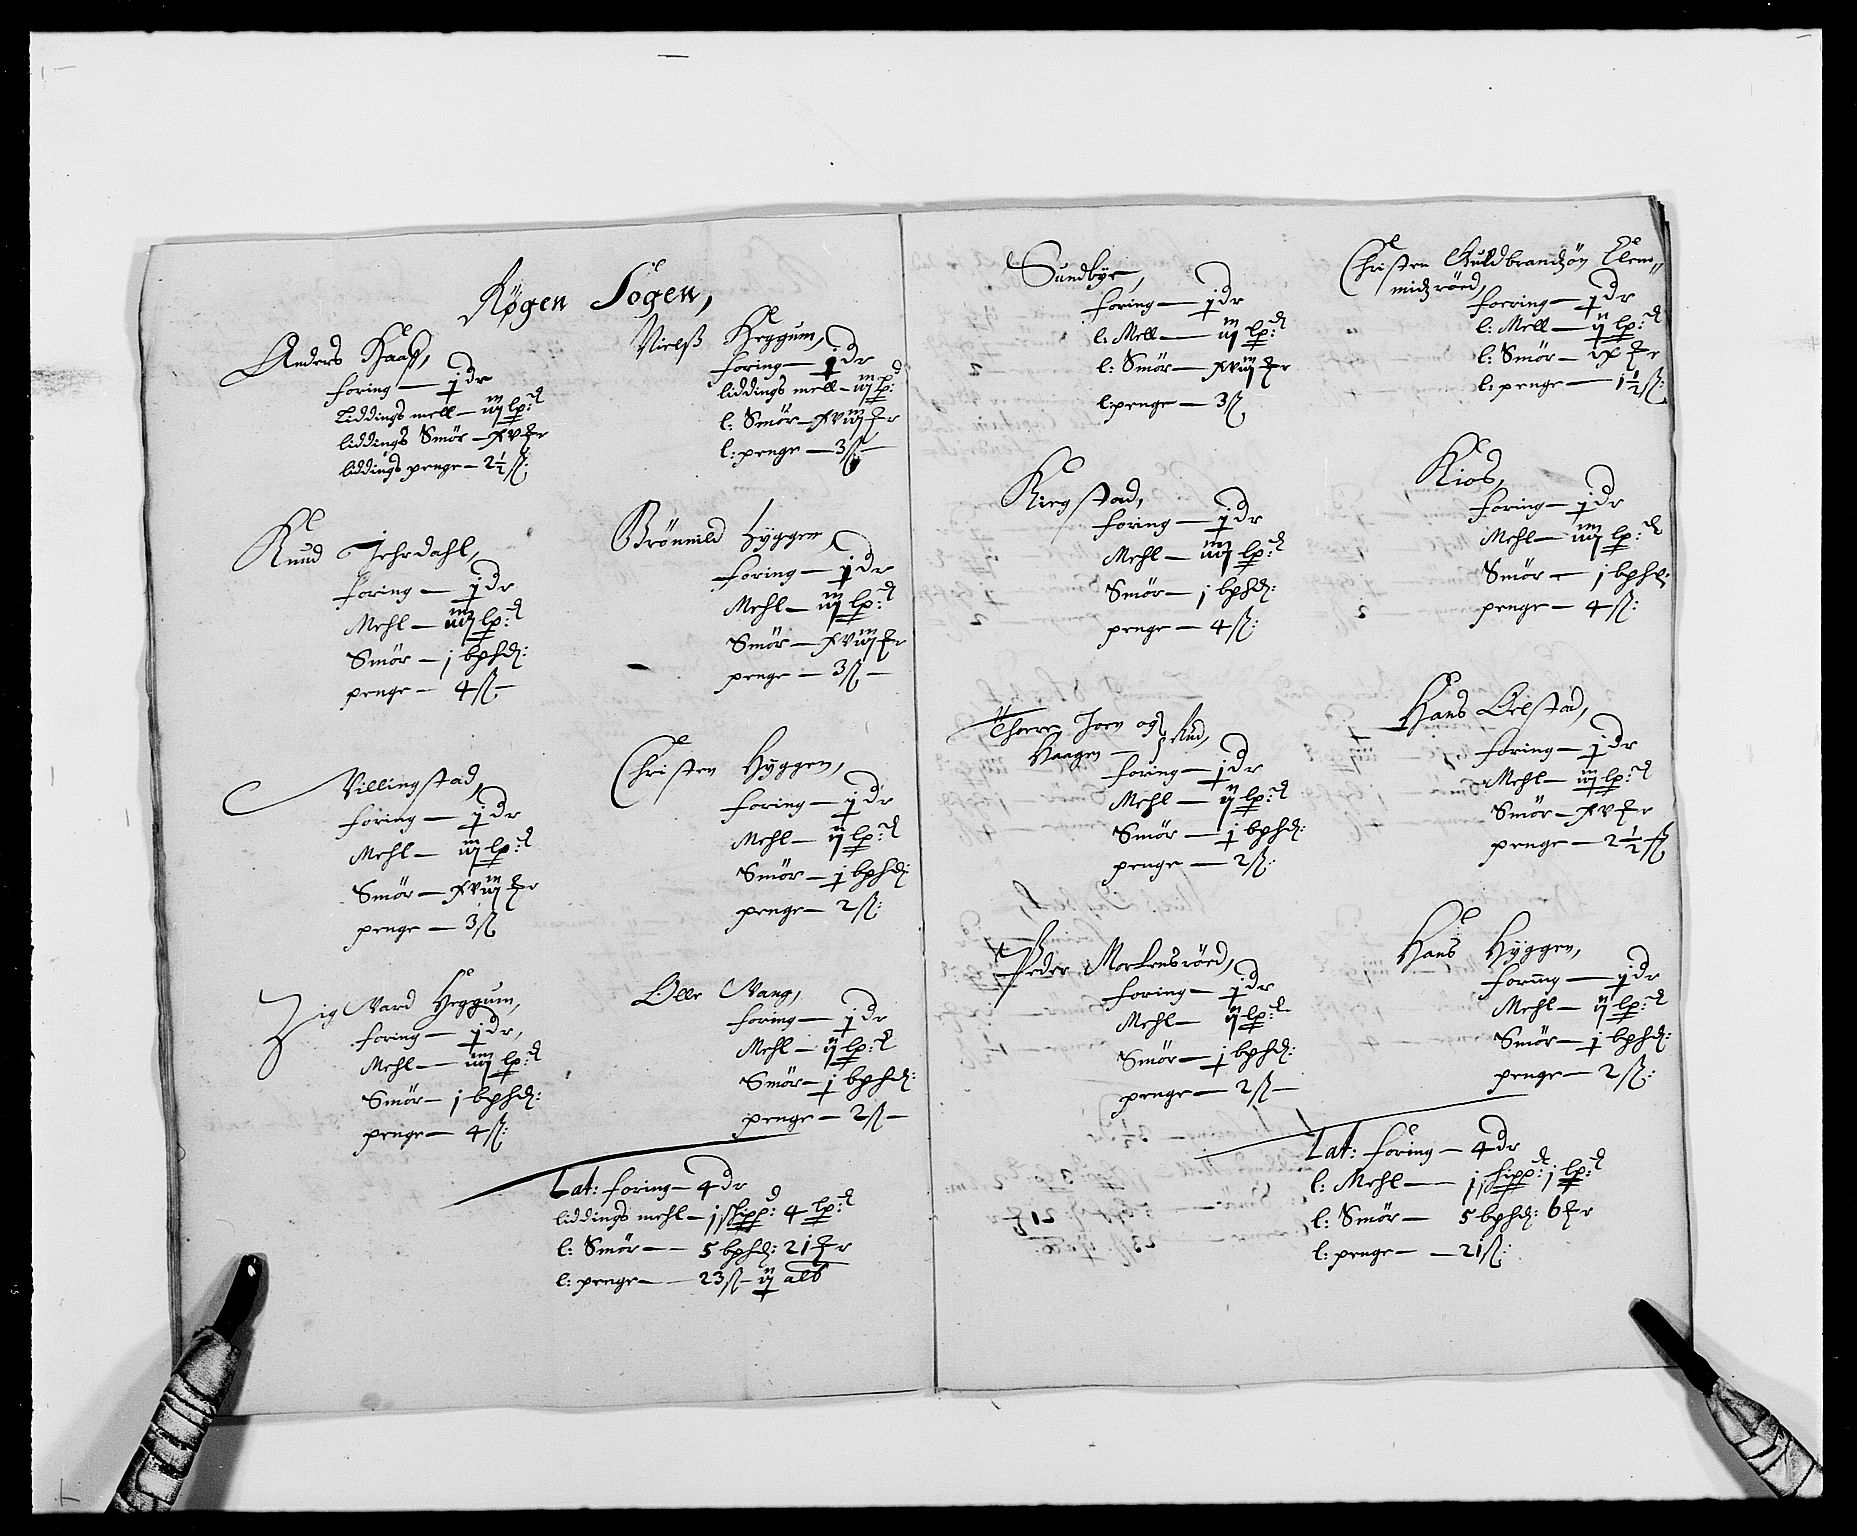 Røgen Sogen,
Anders Haaß,
foring — j dr
Liddings mell — iij lp:d
liddings Smör — xv ℔r
liddings penge — 2½ ß:
Knud Jehrdahl,
foring — j dr
Mehl — iiij lp:d
Smör — j bpsd:
penge — 4 ß —
Villingstad,
foring — j dr
Mehl — iij lp:d
Smör — xviij ℔r
penge — 3 ß
Zig Vard Heggum,
foring — j dr,
Mehl — iiij lp:d
Smör — j bpsd:
penge — 4 ß:
Nielß Heggum,
foring — j dr
liddings mell — iij lp:d
l: Smör — xviij ℔r
l: penge — 3 ß —
Brönnild Hyggen,
foring — j dr
Mehl — iij lp:d
Smör — xviij ℔r
penge — 3 ß —
Christen Hÿggen,
foring — j dr
Mehl — ij lp:d
Smör — j bpsd:
penge — 2 ß:
Olle Vang,
foring — j dr
Mehl — ij lp:d
Smör — j bpsd:
penge — 2 ß —
Lat: foring — 4 dr
liddings mehl — j skipp:d 4 lp:d
l: Smör — 5 bpsd: 21 ℔r
l: penge — 23 ß — ij alb
Sundbÿe,
foring — j dr
l: Mell — iij lp:d
l: Smör — xviij ℔r
l: penge — 3 ß
Kirgstad,
foring — j dr
Mehl — iiij lp:d
Smör — j bpsd:
penge — 4 ß:
Thorer Joen og
Haagen Rud,
foring — j dr
Mehl — ij lp:d
Smör — j bpsd:
penge — 2 ß:
Peder Mortensröed,
foring — j dr
Mehl — ij lp:d
Smör — j bpsd:
penge — 2 ß —
Christen Guldbrandzön Clem
midzröed,
foering — j dr
l: Mell — ij lp:d
l: Smör — ix ℔r
l: penge — 1½ ß:
Kios,
foring — j dr
Mehl — iiij lp:d
Smör — j bpsd:
penge — 4 ß:
Hans Oelstad,
foring — j dr
Mehl — iij lp:d
Smör — xv ℔r
penge — 2½ ß
Hans Hÿggen,
foring — j dr
Mehl — ij lp:d
Smör — j bpsd:
penge — 2 ß:
Lat: foring — 4 dr
l: Mehl — j skipp:d j lp:d
l: Smör — 5 bpsd: 6 ℔r
l: penge — 21 ß: